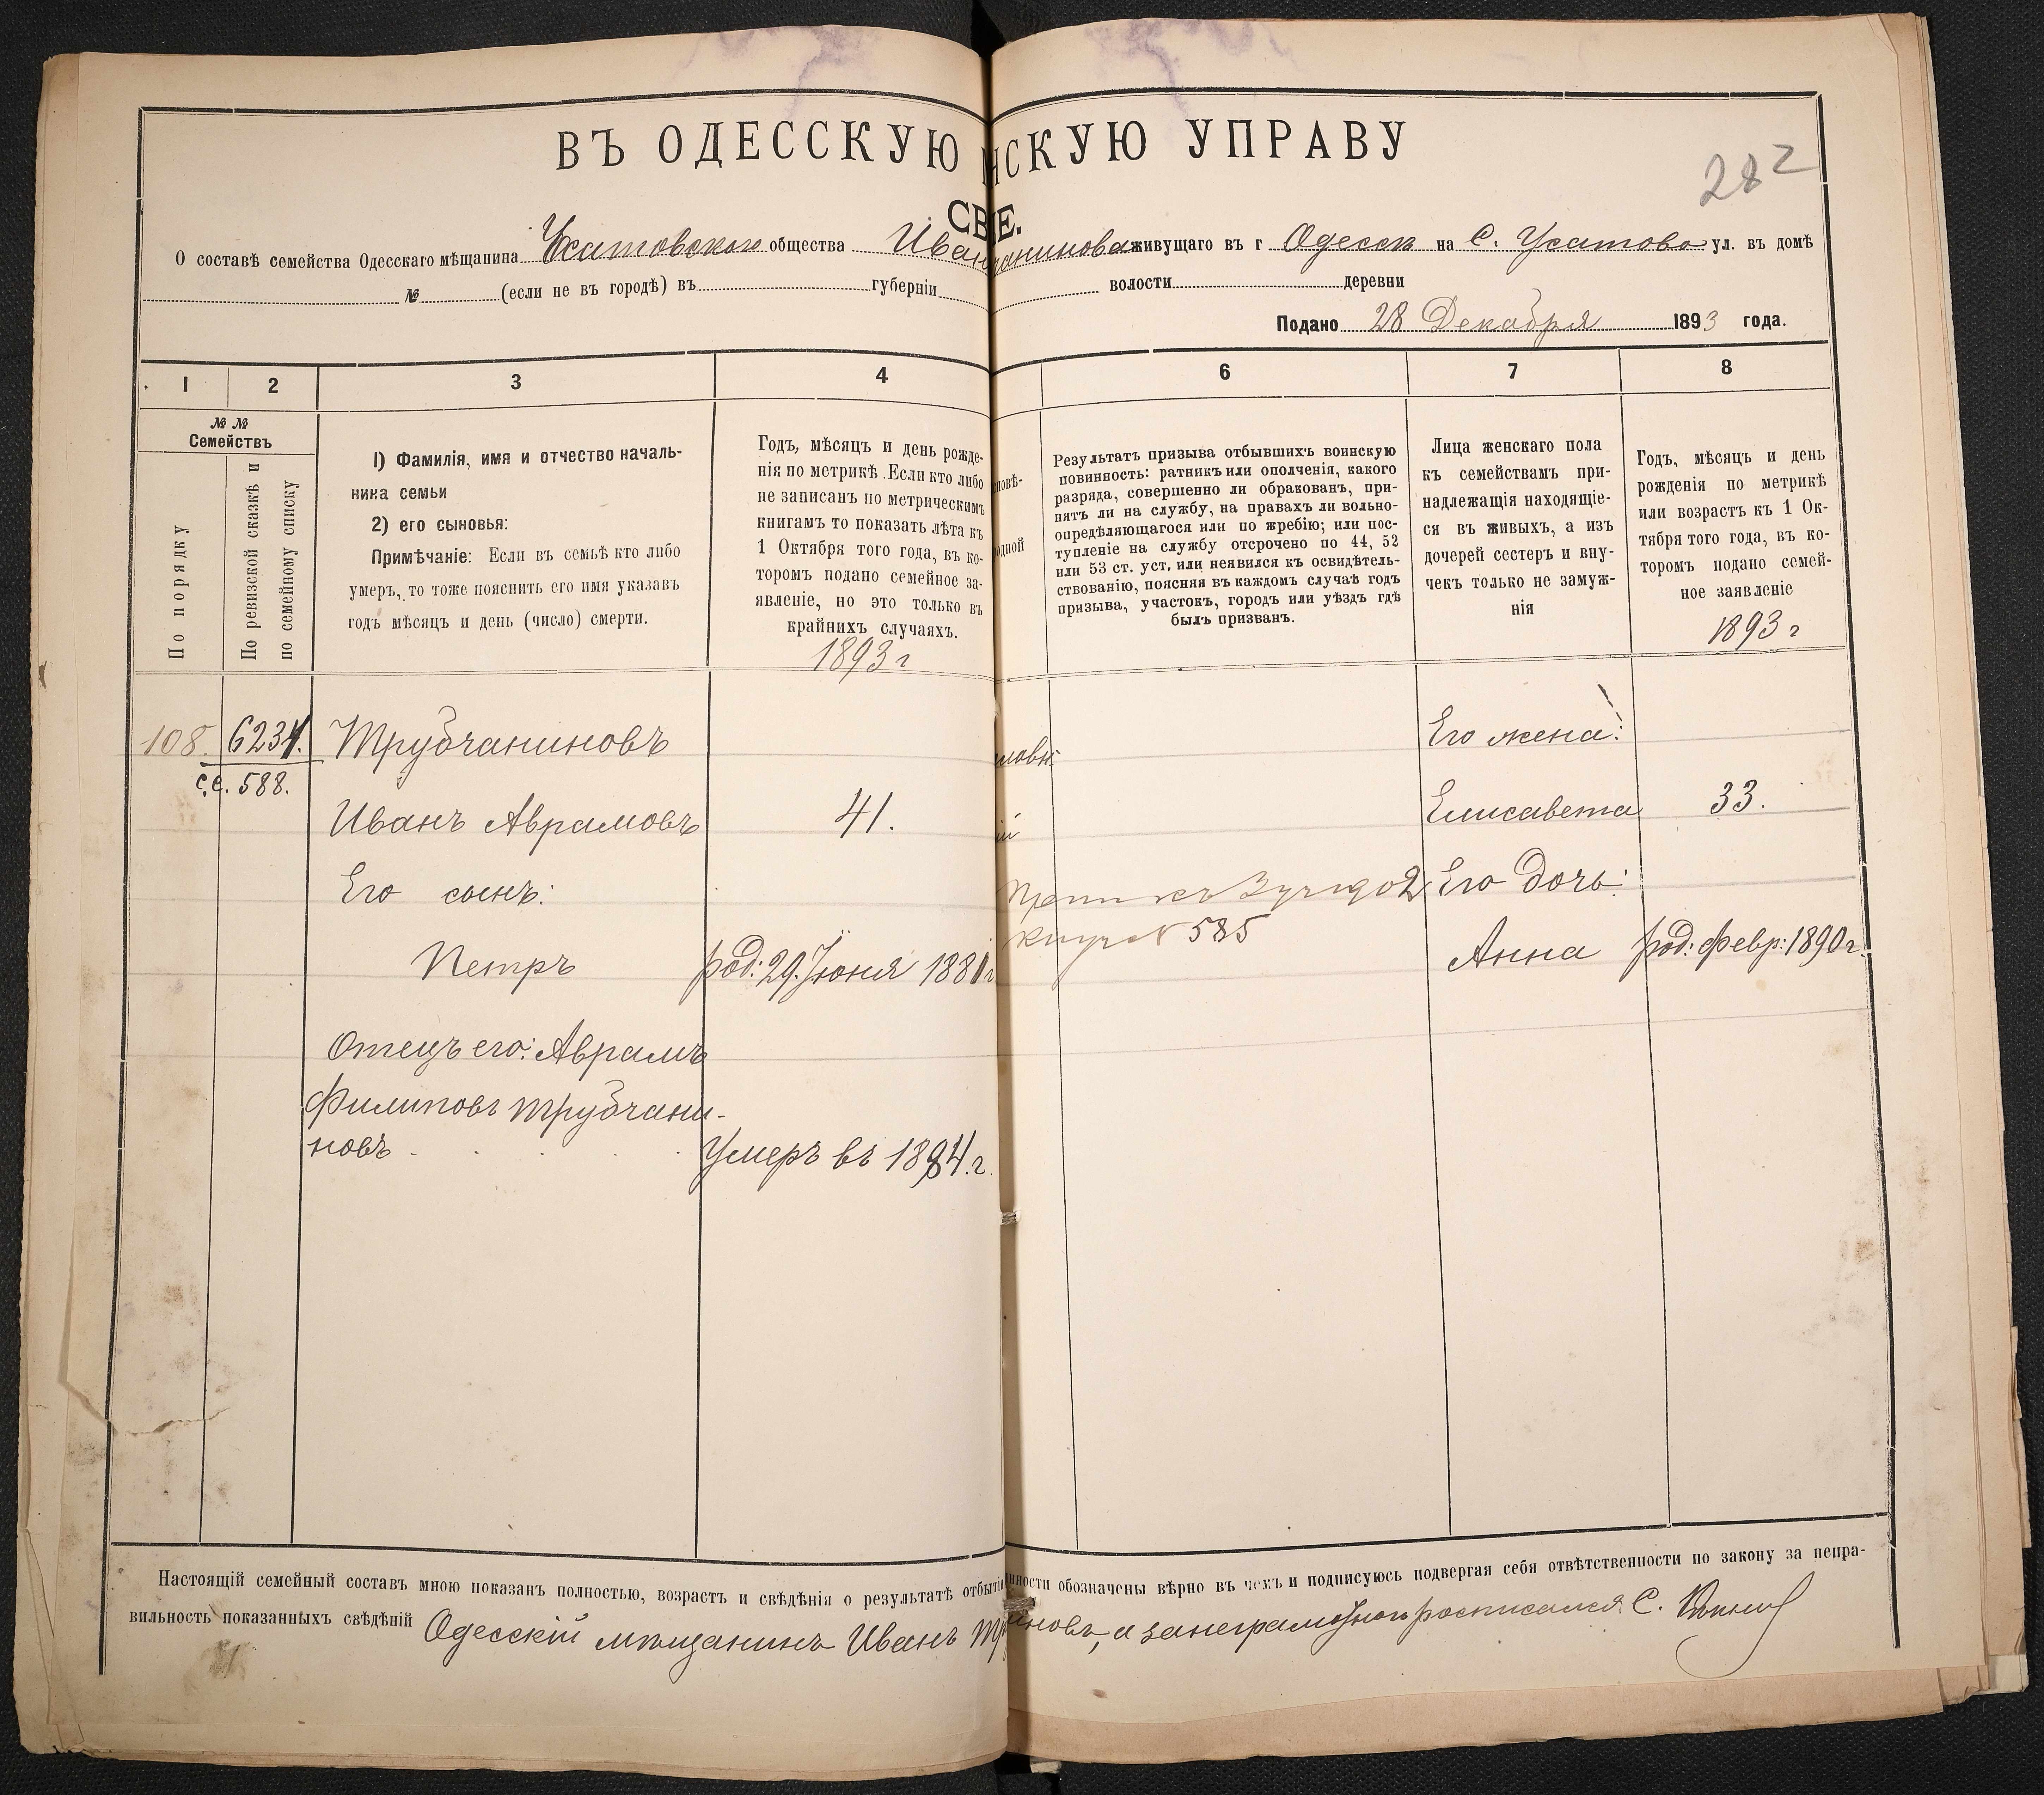 ВЪ ОДЕССКУЮ НСКУЮ УПРАВУ
282
СВ Е.
О составѣ семейства Одесскаго мѣщанина Усатовскаго общества Иван анинова живущаго въ г Одессѣ на С. Усатово ул. въ домѣ
№ (если не въ городѣ) въ губерніи волости деревни
Подано 28 Декабря 1893 года.
1 2 3 4 6 7 8
№ №
Семействъ
По порядку
По ревизской сказкѣ и
по семейному списку
1) Фамилія, имя и отчество началь-
ника семьи
2) его сыновья:
Примѣчаніе: Если въ семьѣ кто либо
умеръ, то тоже пояснить его имя указавъ
годъ мѣсяцъ и день (число) смерти.
Годъ, мѣсяцъ и день рожде-
нія по метрикѣ. Если кто либо
не записанъ по метрическимъ
книгамъ то показать лѣта къ
1 Октября того года, въ ко-
торомъ подано семейное за-
явленіе, но это только въ
крайнихъ случаяхъ.
1893 г
повѣ-
одной
Результатъ призыва отбывшихъ воинскую
повинность: ратникъ или ополченія, какого
разряда, совершенно ли обракованъ, при-
нятъ ли на службу, на правахъ ли вольно-
опредѣляющагося или по жребію; или пос-
тупленіе на службу отсрочено по 44, 52
или 53 ст. уст. или неявился къ освидѣтель-
ствованію, поясняя въ каждомъ случаѣ годъ
призыва, участокъ, городъ или уѣздъ гдѣ
былъ призванъ.
Лица женскаго пола
къ семействамъ при-
надлежащія находящіе-
ся въ живыхъ, а изъ
дочерей сестеръ и вну-
чекъ только не замуж-
нія
Годъ, мѣсяцъ и день
рожденія по метрикѣ
или возрастъ къ 1 Ок-
тября того года, въ ко-
торомъ подано семей-
ное заявленіе
1893 г
108. 6234. Трубчаниновъ славн. Его жена:
с.с. 588.
Иванъ Аврамовъ 41. ій Елисавета 33.
Его сынъ: 2 Его дочь:
585
Петръ род: 29. Іюня 1881 г Анна род: февр: 1890 г.
Отецъ его: Аврамъ
Филиповъ Трубчани-
новъ Умеръ въ 1884. г.
Настоящій семейный составъ мною показанъ полностью, возрастъ и свѣдѣнія о результатѣ отбыті нности обозначены вѣрно въ чемъ и подписуюсь подвергая себя отвѣтственности по закону за непра-
вильность показанныхъ свѣдѣній Одесскій мѣщанинъ Иванъ Тр иновъ, а занеграмотнаго росписался С.